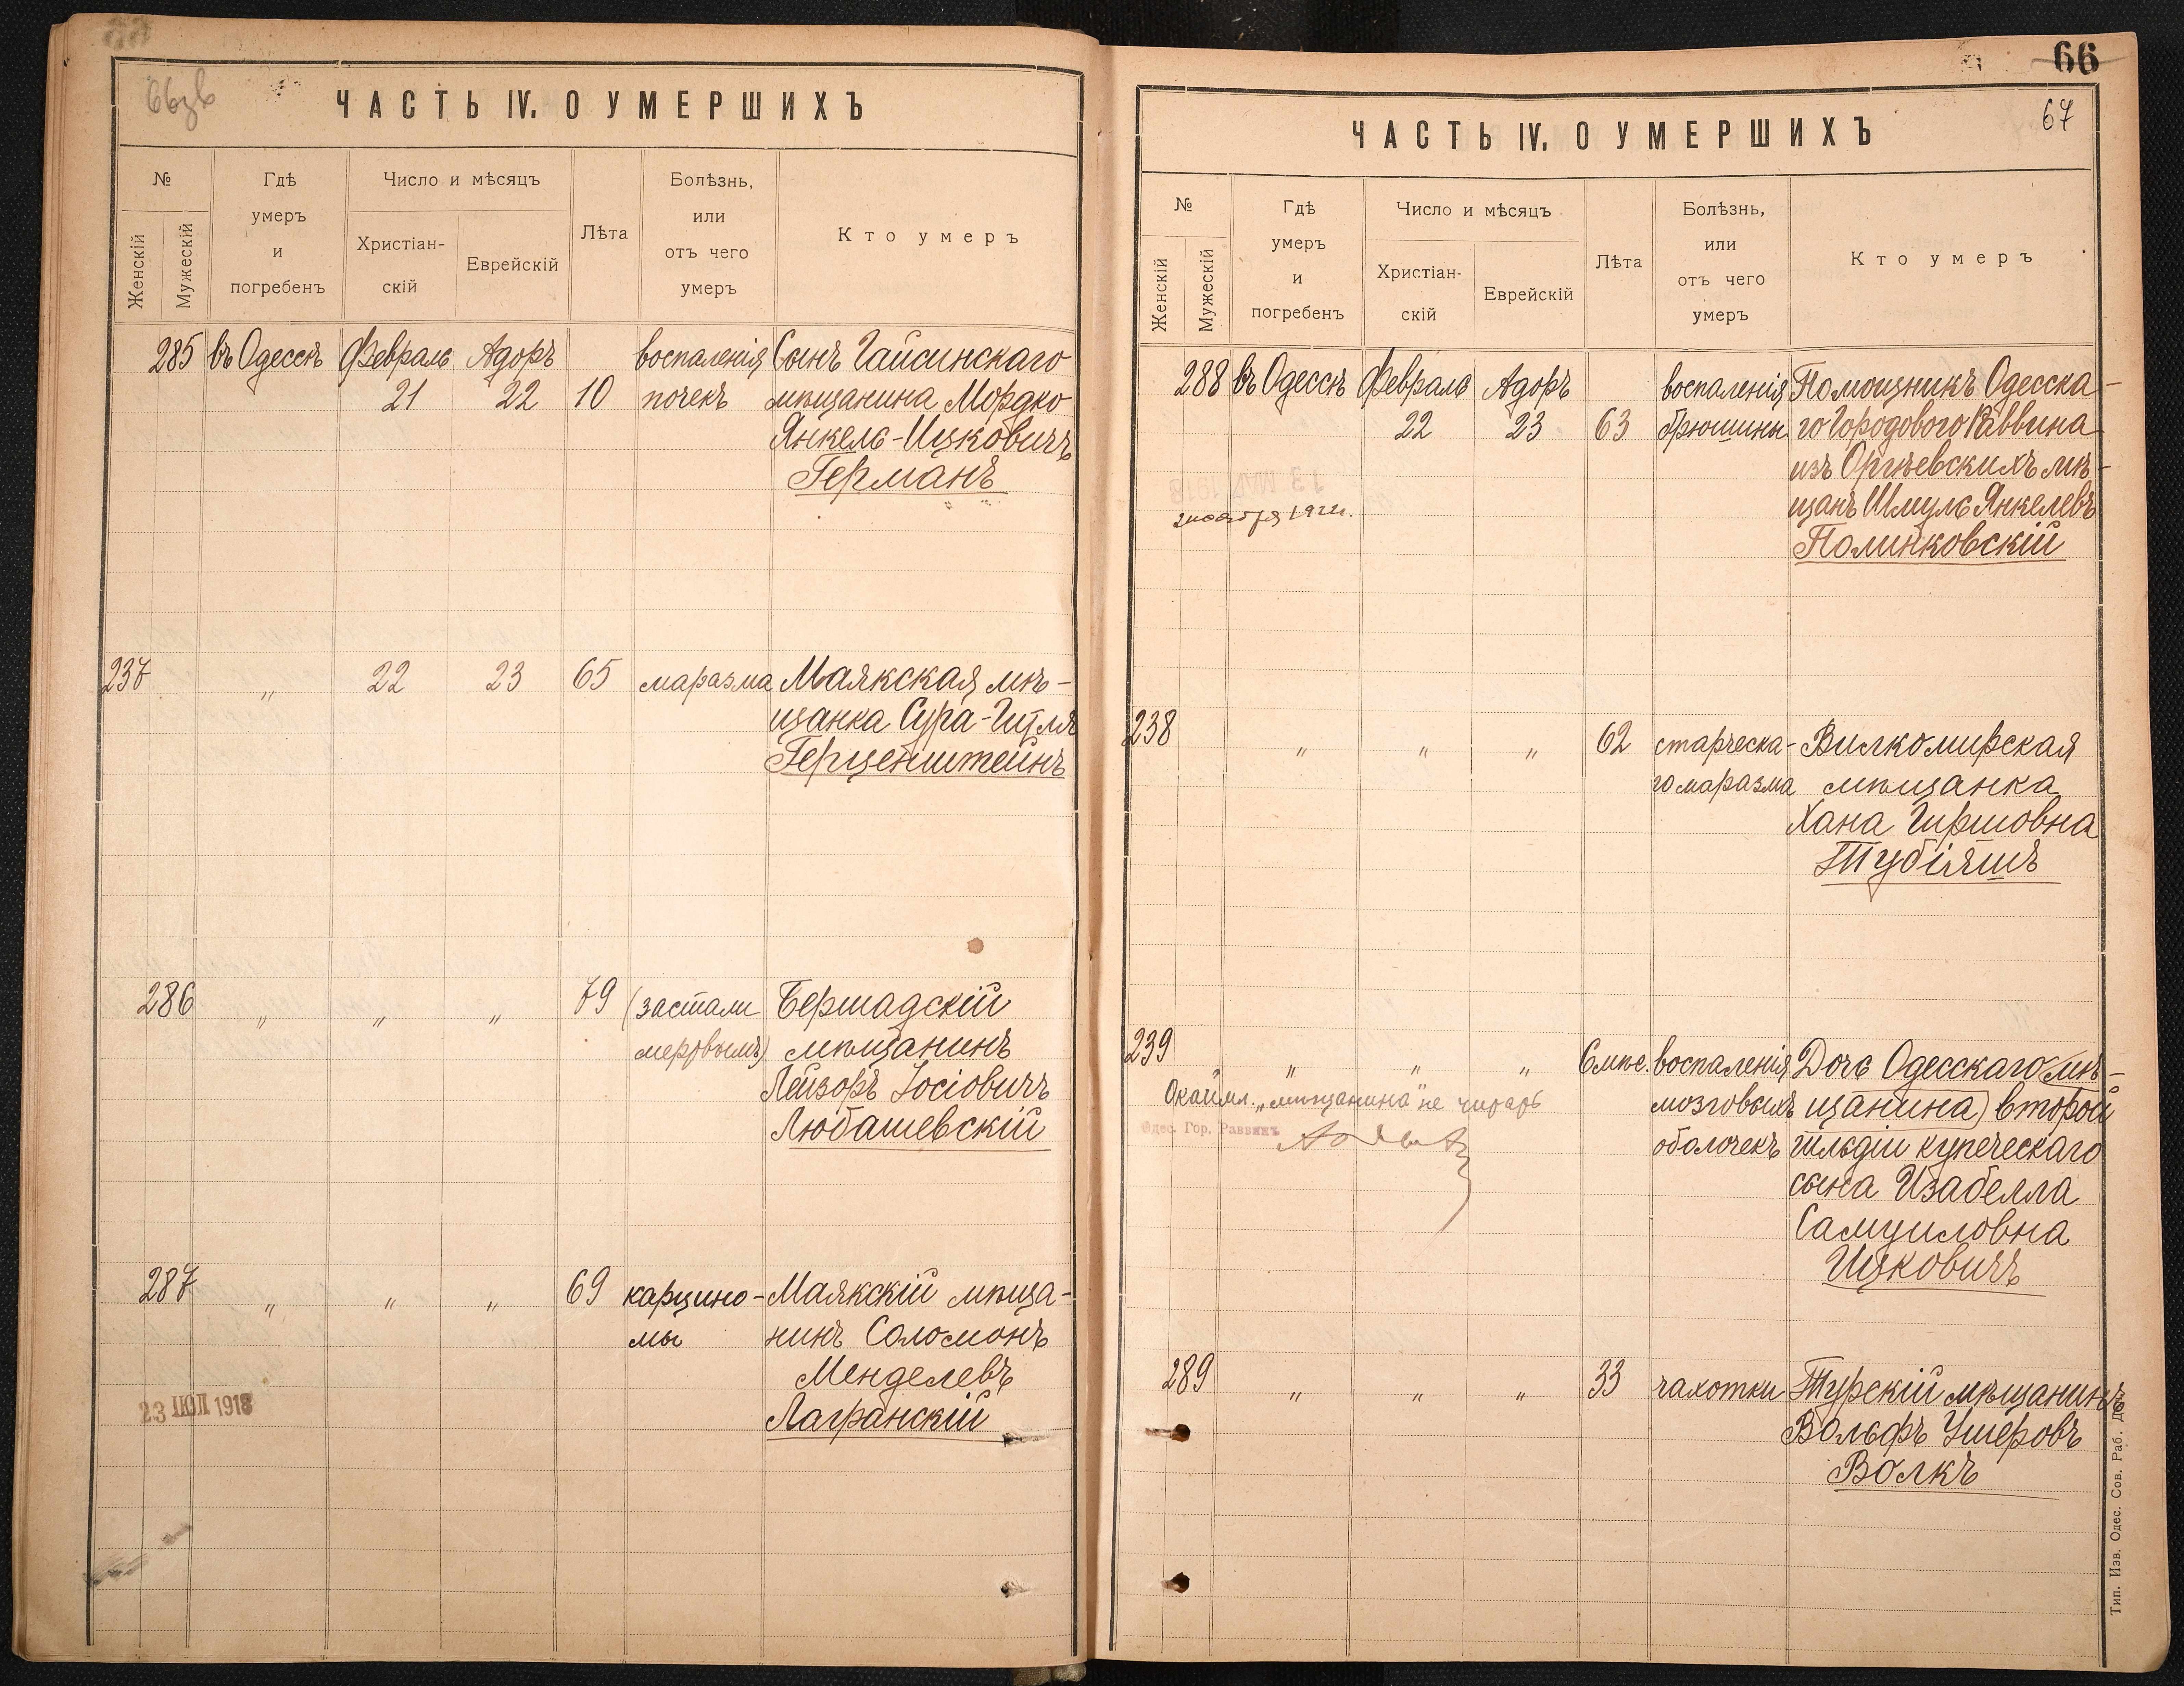 ЧАСТЬ IV. О УМЕРШИХЪ
№
Женскій
Мужескій
Гдѣ
умеръ
и
погребенъ
Число и мѣсяцъ
Христіан-
скій
Еврейскій
Лѣта
Болѣзнь,
или
отъ чего
умеръ
Кто умеръ
285 въ Одессѣ Февраль Адоръ воспаленія Сынъ Гайсинскаго
21 22 10 почекъ мѣщанина Мордко
Янкель-Ицковичъ
Германъ
237 „ 22 23 65 маразма Маякская мѣ-
щанка Сура-Гитля
Герценштейнъ
286 „ „ „ 79 (застали Бершадскій
мертвымъ) мѣщанинъ
Лейзоръ Іосіовичъ
Любашевскій
287 „ „ „ 69 карцино- Маякскій мѣща-
мы нинъ Соломонъ
Менделевъ
Лагранскій
23 ІЮЛ 1918
66
67
ЧАСТЬ IV. О УМЕРШИХЪ
№
Женскій
Мужескій
Гдѣ
умеръ
и
погребенъ
Число и мѣсяцъ
Христіан-
скій
Еврейскій
Лѣта
Болѣзнь,
или
отъ чего
умеръ
Кто умеръ
288 въ Одессѣ Февраль Адоръ воспаленія Помощникъ Одесска-
22 23 63 брюшины го Городового Раввина
изъ Оргѣевскихъ мѣ-
щанъ Шмуль Янкелевъ
Полинковскій
238 „ „ „ 62 старческа- Вилкомирская
го маразма мѣщанка
Хана Гиршовна
Тубіяшъ
239 „ „ „ 6 мѣс. воспаленія Дочь Одесскаго (мѣ-
мозговыхъ щанина) второй
оболочекъ гильдіи купеческаго
сына Изабелла
Самуиловна
Ицковичъ
Окаймл. „мѣщанина" не читать
Одес. Гор. Раввинъ
289 „ „ „ 33 чахотки Турскій мѣщанинъ
Вольфъ Ушеровъ
Волкъ
Тип. Изв. Одес. Сов. Раб. Деп.